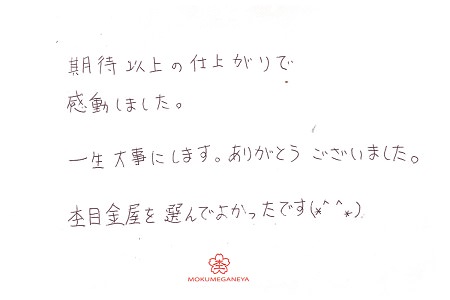 期待以上の仕上がりで
感動しました。
一生大事にします。ありがとうございました。
杢目金屋を選んでよかったです(*^^*)
MOKUMEGANEYA